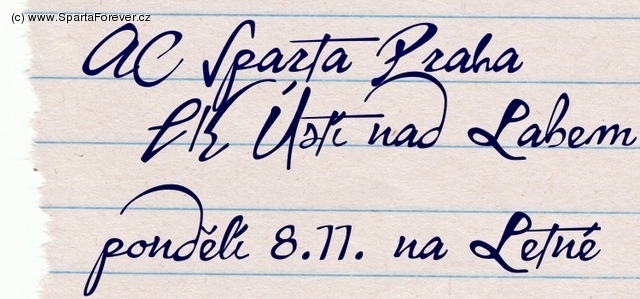 (c) www.SpartaForever.cz
AC Sparta Praha
FK Ústí nad Labem
pondělí 8.11. na Letné